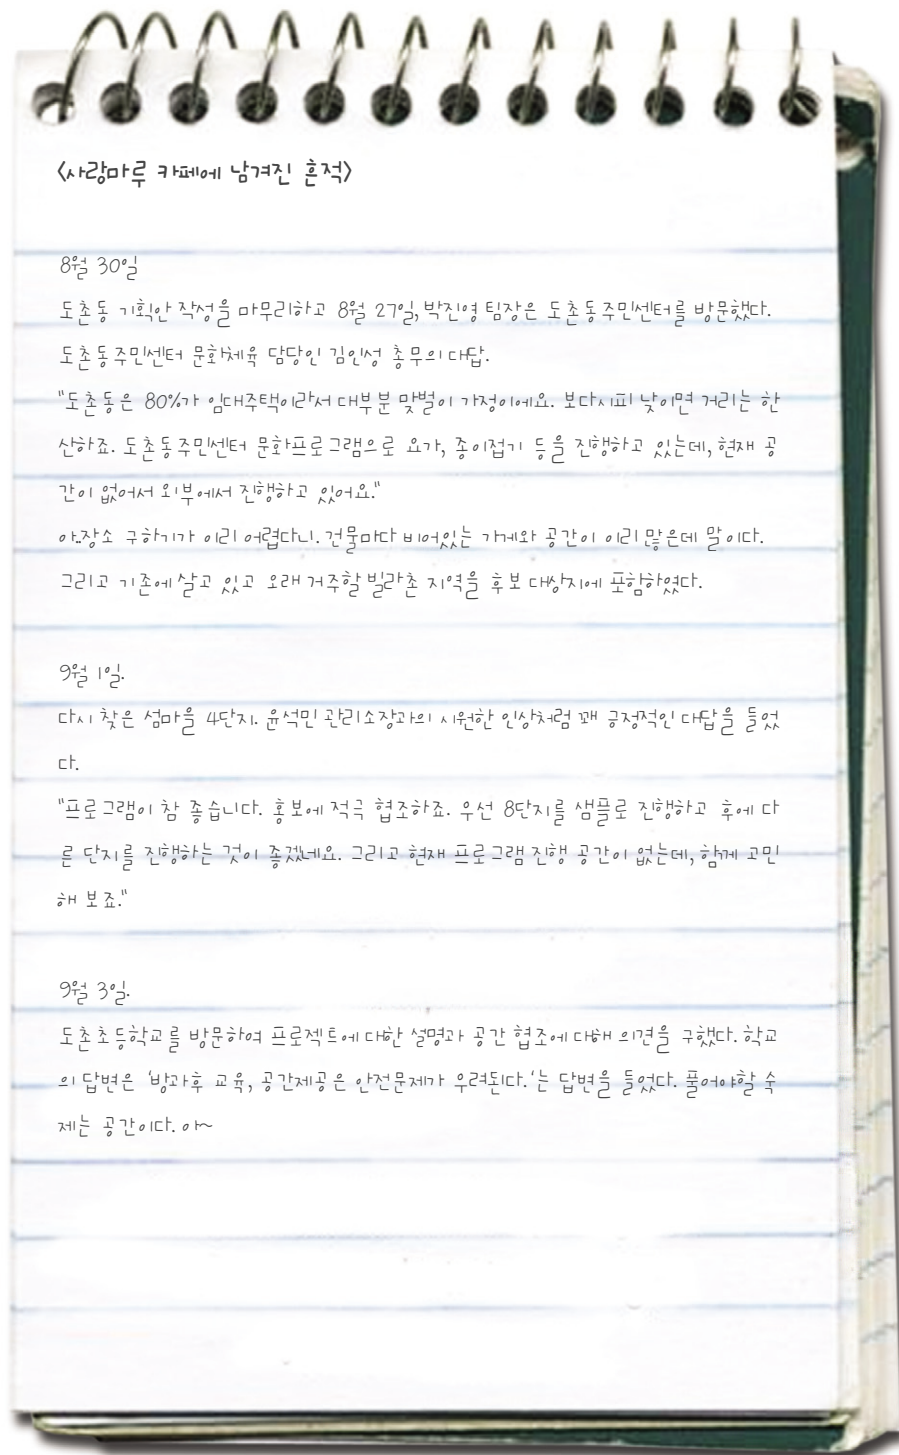 <사랑마루 카페에 남겨진 흔적>
8월 30일
도촌동 기획안 작성을 마무리하고 8월 27일, 박진영 팀장은 도촌동주민센터를 방문했다.
도촌동주민센터 문화체육 담당인 김인성 총무의 대답.
"도촌동은 80%가 임대주택이라서 대부분 맞벌이 가정이에요. 보다시피 낮이면 거리는 한
산하죠. 도촌동주민센터 문화프로그램으로 요가, 종이접기 등을 진행하고 있는데, 현재 공
간이 없어서 외부에서 진행하고 있어요."
아..장소 구하기가 이리 어렵다니. 건물마다 비어있는 가게와 공간이 이리 많은데 말이다.
그리고 기존에 살고 있고 오래 거주할 빌라촌 지역을 후보 대상지에 포함하였다.
9월 1일.
다시 찾은 섬마을 4단지. 윤석민 관리소장과의 시원한 인상처럼 꽤 긍정적인 대답을 들었
다.
"프로그램이 참 좋습니다. 홍보에 적극 협조하죠. 우선 8단지를 샘플로 진행하고 후에 다
른 단지를 진행하는 것이 좋겠네요. 그리고 현재 프로그램 진행 공간이 없는데, 함께 고민
해 보죠."
9월 3일.
도촌초등학교를 방문하여 프로젝트에 대한 설명과 공간 협조에 대해 의견을 구했다. 학교
의 답변은 '방과후 교육, 공간제공은 안전문제가 우려된다.'는 답변을 들었다. 풀어야할 숙
제는 공간이다. 아~